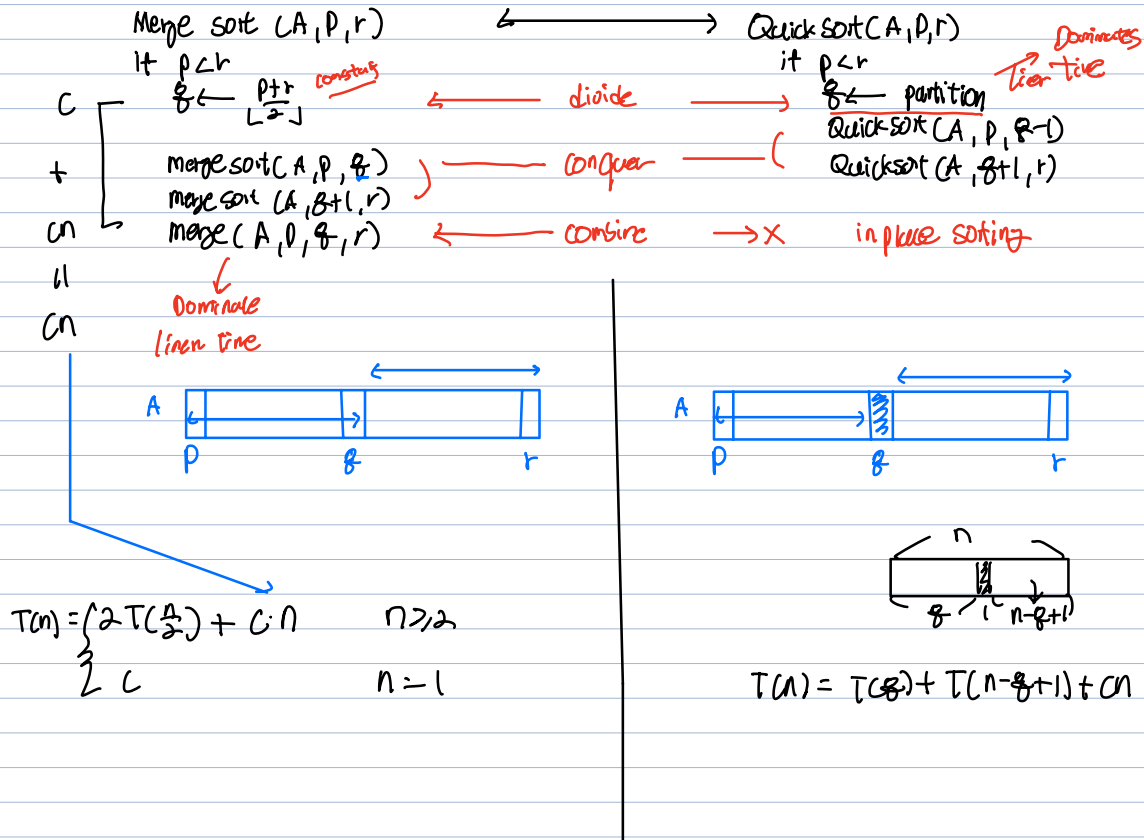 Merge sort (A,P,r) ⟷ Quick sort(A,P,r)
If p<r
if p<r
Dominates
Lier Time
C
q ← ⌊(p+r)/2⌋
constant
← divide →
q ← partition
Quicksort(A,P,q-1)
+
mergesort(A,P,q)
conquer
Quicksort(A,q+1,r)
merge sort (A,q+1,r)
cn
merge(A,P,q,r)
← combine → X
in place sorting
=
Cn
Dominate
linen time
A
P q r
A
P q r
n
q 1 n-q+1
T(n) = { 2T(n/2) + C·n n≥2
C n=1
T(n) = T(q)+T(n-q+1)+Cn